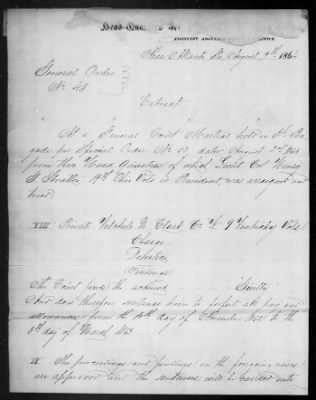 Head Quarters
ASSISTANT ADJUTANT OFFICE
Near Atlanta, Ga. August 9th 1864
General Order
No 45
Extract
At a General Court Martial held in 3d Bri
gade by Special Order No 93, dated August 2nd 1864
from these Head Quarters of which Lieut Col Henry
G Stratton 19th Ohio Vols is President, was arraigned and
tried.
VIII Private Clark Co "K" 9 Kentucky Vols
Charge
Desertion
Findings
The Court finds the accused Guilty
And does therefore sentence him to forfeit all pay and
allowances from the day of 1862 to the
day of March 1863
IX The proceedings and findings in the foregoing cases
are approved and the sentence will be carried into